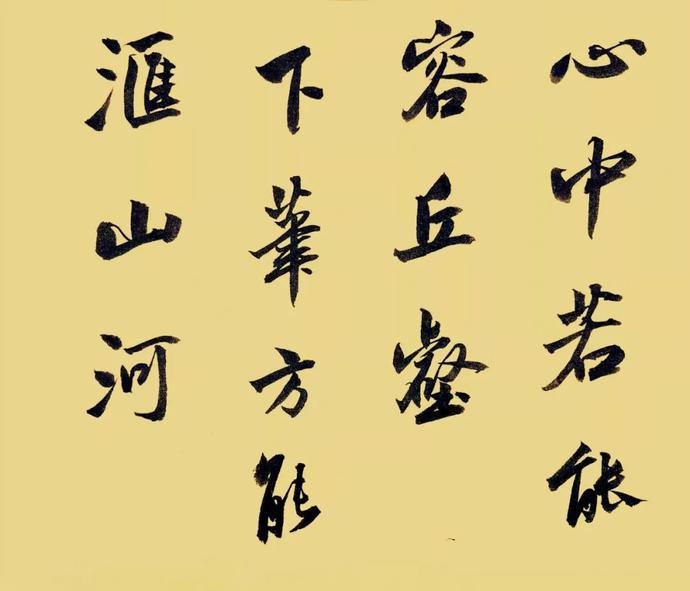 心中若能
容丘壑
下筆方能
滙山河